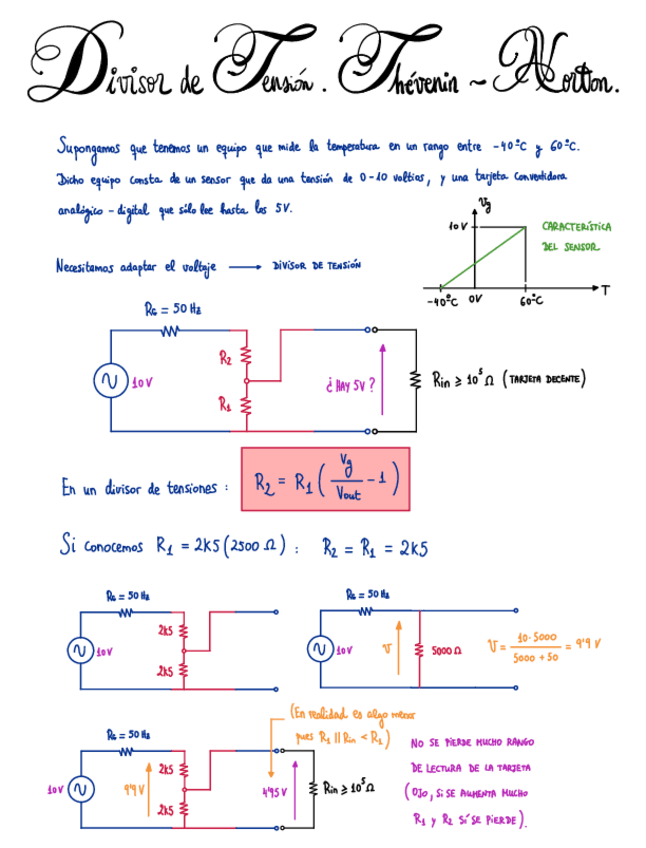 Divisor de Tensión. Thévenin ~ Norton.
Supongamos que tenemos un equipo que mide la temperatura en un rango entre -40ºC y 60ºC.
Dicho equipo consta de un sensor que da una tensión de 0-10 voltios, y una tarjeta convertidora
analógico-digital que sólo lee hasta los 5V.
Vg
10V
CARACTERÍSTICA
DEL SENSOR
-40ºC 0V 60ºC T
Necesitamos adaptar el voltaje → DIVISOR DE TENSIÓN
RG = 50 Hz
R2
10V
R1
¿HAY 5V?
Rin ≥ 10^5 Ω (TARJETA DECENTE)
En un divisor de tensiones: R2 = R1 (Vg/Vout - 1)
Si conocemos R1 = 2K5 (2500 Ω): R2 = R1 = 2K5
RG = 50 Hz
2K5
10V
2K5
RG = 50 Hz
10V
V
5000 Ω
V = 10·5000/5000+50 = 9'9 V
(En realidad es algo menor
pues R1 || Rin < R1)
RG = 50 Hz
10V
9'9 V
2K5
2K5
4'95 V
Rin ≥ 10^5 Ω
NO SE PIERDE MUCHO RANGO
DE LECTURA DE LA TARJETA
(OJO, SI SE AUMENTA MUCHO
R1 y R2 SÍ SE PIERDE).